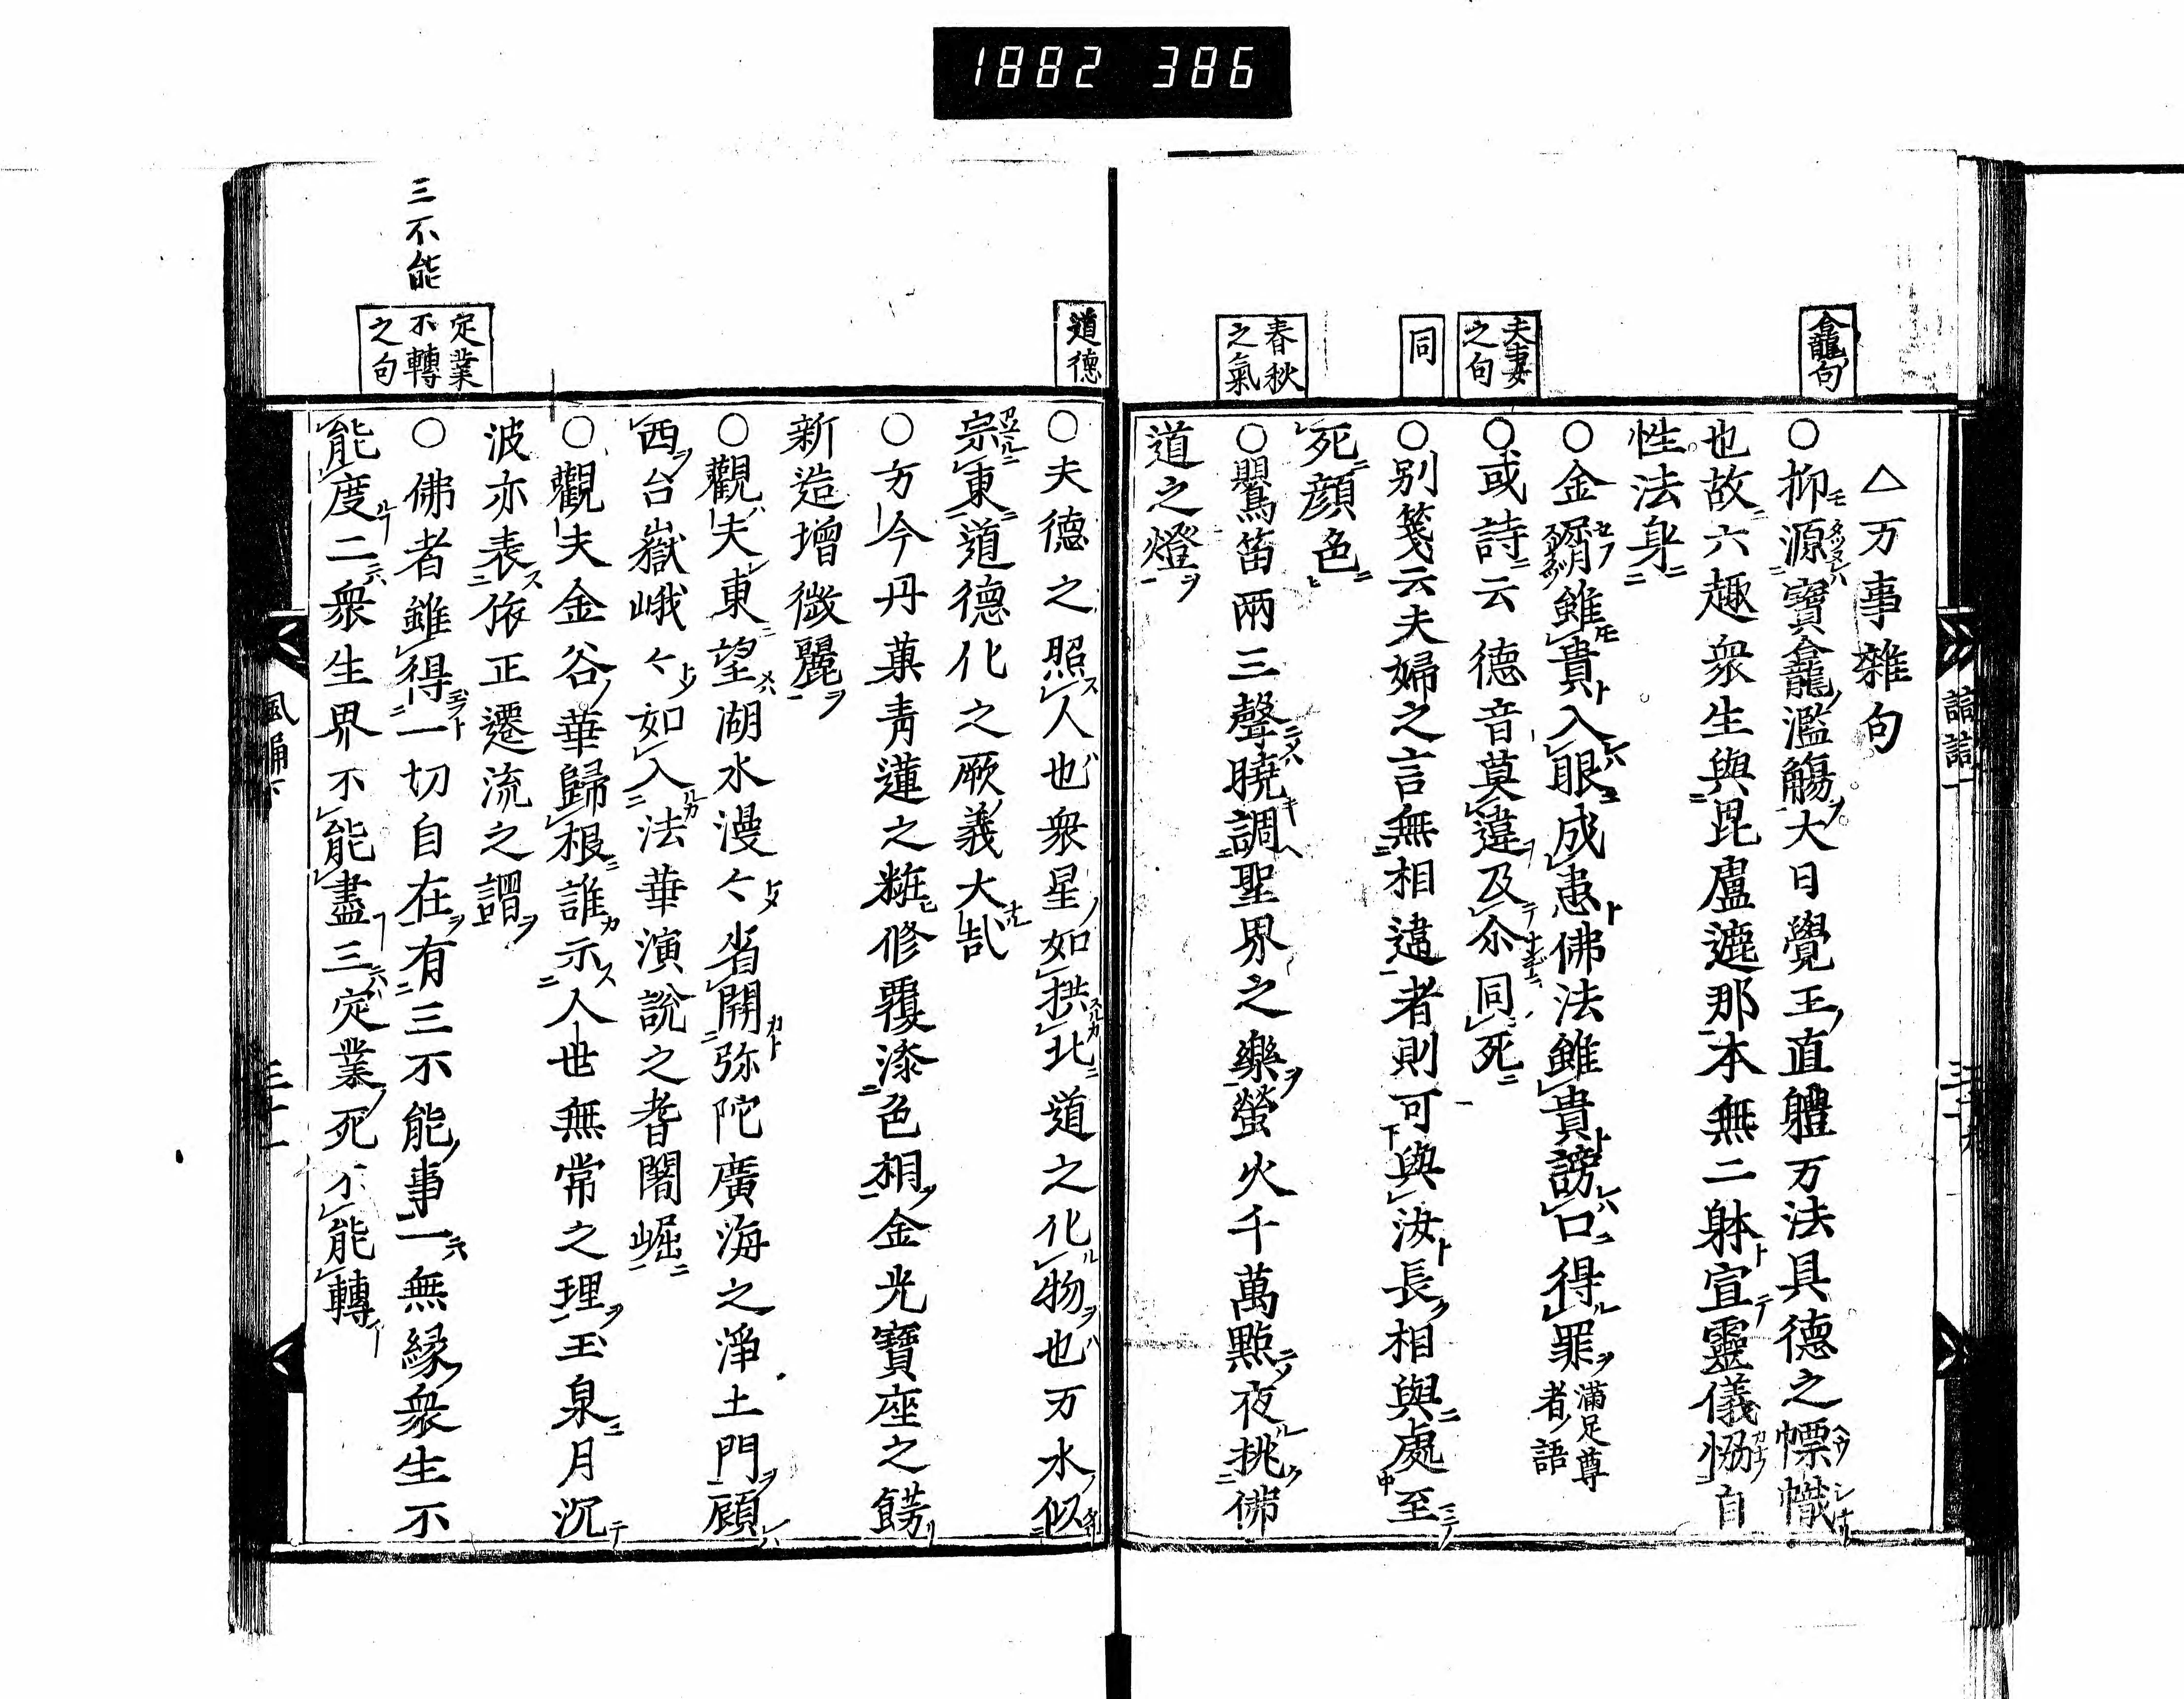 1882 386
龕句
夫妻之句
同
春秋之氣
△万事雜句
○抑源寶龕濫觴大日覺王直體万法具德之幖幟
也故六趣衆生與毘盧遮那本無二躰宣靈儀恊自
性法身
○金屑雖貴入眼成患佛法雖貴謗口得罪満足尊者語
○或詩云德音莫違及尒同死
○別箋云夫婦之言無相違者則可與汝長相與處至
死顔色
○鸎笛兩三聲曉調聖界之樂螢火千萬點夜挑佛
道之燈
道德
三不能
定業不轉之句
○夫德之照人也衆星如拱北道之化物也万水似
宗東道德化之厥義大哉
○方今丹菓青蓮之粧修覆漆色相金光寶座之餝
新造增微麗
○觀夫東望湖水漫々省開弥陀廣海之淨土門顧
西台嶽峨々如入法華演說之耆闍崛
○觀夫金谷華歸根誰示人世無常之理玉泉月沉
波亦表依正遷流之謂
○佛者雖得一切自在有三不能事一無縁衆生不
能度二衆生界不能盡三定業死不能轉